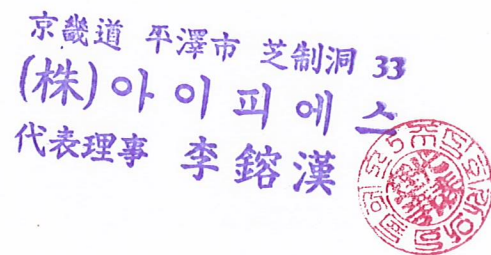 京畿道 平澤市 芝制洞 33
(株)아이피에스
代表理事 李鎔漢